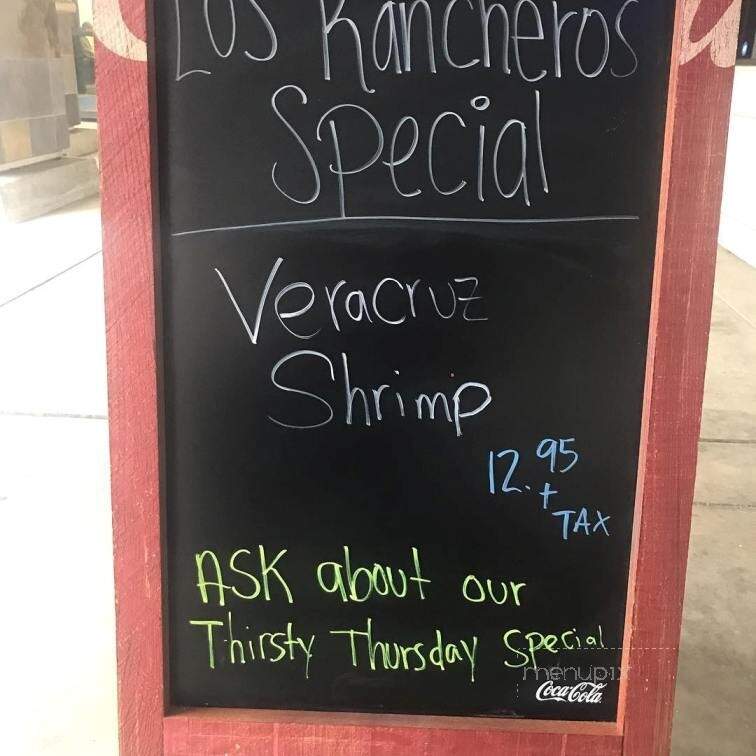 Los Rancheros
Special
Veracruz
Shrimp
12.95
+
TAX
ASK about our
Thirsty Thursday Special
menupix
Coca-Cola